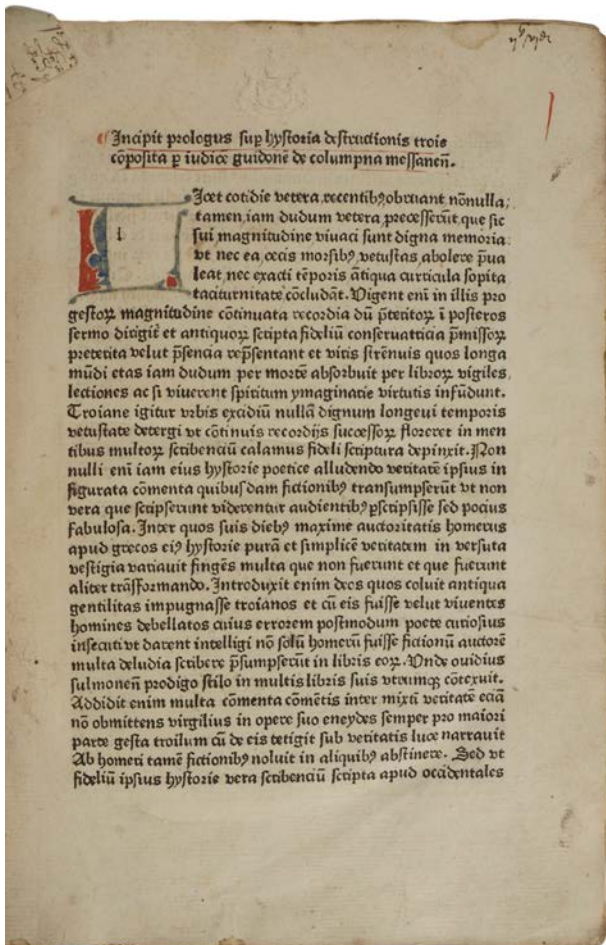 Incipit prologus sup hystoria destructionis troie
cōposita ꝑ iudicē guidonē de columpna messanen̄.
LIcet cotidie vetera, recentibꝯ obruant nōnulla;
tamen, iam dudum vetera, precesserūt, que sic
sui, magnitudine viuaci sunt digna memoria.
vt nec ea, cecis morsibꝯ, vetustas, abolere p̄ua
leat, nec exacti tēporis ātiqua curricula sopita
taciturnitate cōcludāt. Vigent eni in illis pro
gestoꝝ magnitudine cōtinuata recordia dū p̄teritoꝝ ī posteros
sermo dirigit̄ et antiquoꝝ scripta fideliū conseruatricia p̄missoꝝ
preterita velut p̄sencia rep̄sentant et viris strēnuis quos longa
mūdi etas iam dudum per mortē absorbuit per libroꝝ vigiles,
lectiones ac si viuerent spiritum ymaginarie virtutis infūdunt.
Troiane igitur vrbis excidiū nullā dignum longeui temporis
vetustate detergi vt cōtinuis recordijs successoꝝ floreret in men
tibus multoꝝ scribenciū calamus fideli scriptura depinxit. Non
nulli enī iam eius hystorie poetice alludendo veritatē ipsius in
figurata cōmenta quibus dam fictionibꝯ transumpserūt vt non
vera que scripserunt viderentur audientibꝯ ꝑscripsisse sed pocius
fabulosa. Inter quos suis diebꝯ maxime auctoritatis homerus
apud grecos eiꝯ hystorie purā et simplicē veritatem in versuta
vestigia variauit fingēs multa que non fuerunt et que fuerunt
aliter trāsformando. Introduxit enim deos quos coluit antiqua
gentilitas impugnasse troianos et cū eis fuisse velut viuentes
homines debellatos cuius errorem postmodum poete curiosius
insecuti vt darent intelligi nō solū homerū fuisse fictionū auctorē
multa deludia scribere p̄sumpserūt in libris eoꝝ. Vnde ouidius
sulmonen̄ prodigo stilo in multis libris suis vtrumqꝫ cōtexuit.
Addidit enim multa cōmenta cōmētis inter mixti veritatē eciā
nō obmittens virgilius in opere suo eneydos semper pro maiori
parte gesta troilum cū de eis tetigit sub veritatis luce narrauit
Ab homeri tamē fictionibꝯ noluit in aliquibꝯ abstinere. Sed vt
fideliū ipsius hystorie vera scribenciū scripta apud occidentales